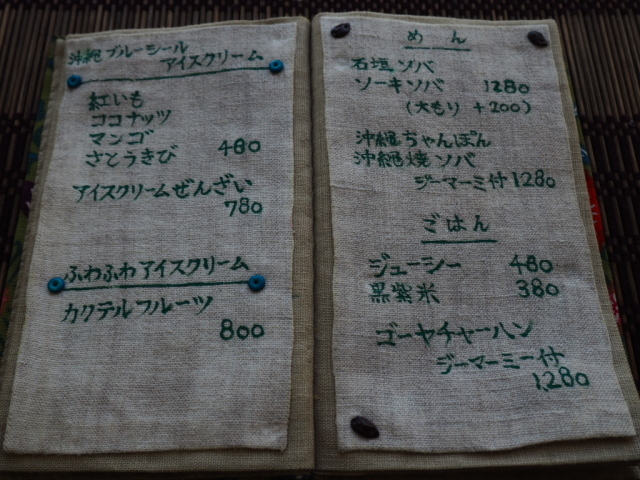 沖縄ブルーシール
アイスクリーム
紅いも
ココナッツ
マンゴ
さとうきび 480
アイスクリームぜんざい
780
ふわふわアイスクリーム
カクテルフルーツ
800
めん
石垣ソバ
ソーキソバ 1280
(大もり +200)
沖縄ちゃんぽん
沖縄焼ソバ
ジーマーミ付 1280
ごはん
ジューシー 480
黒紫米 380
ゴーヤチャーハン
ジーマーミー付
1,280